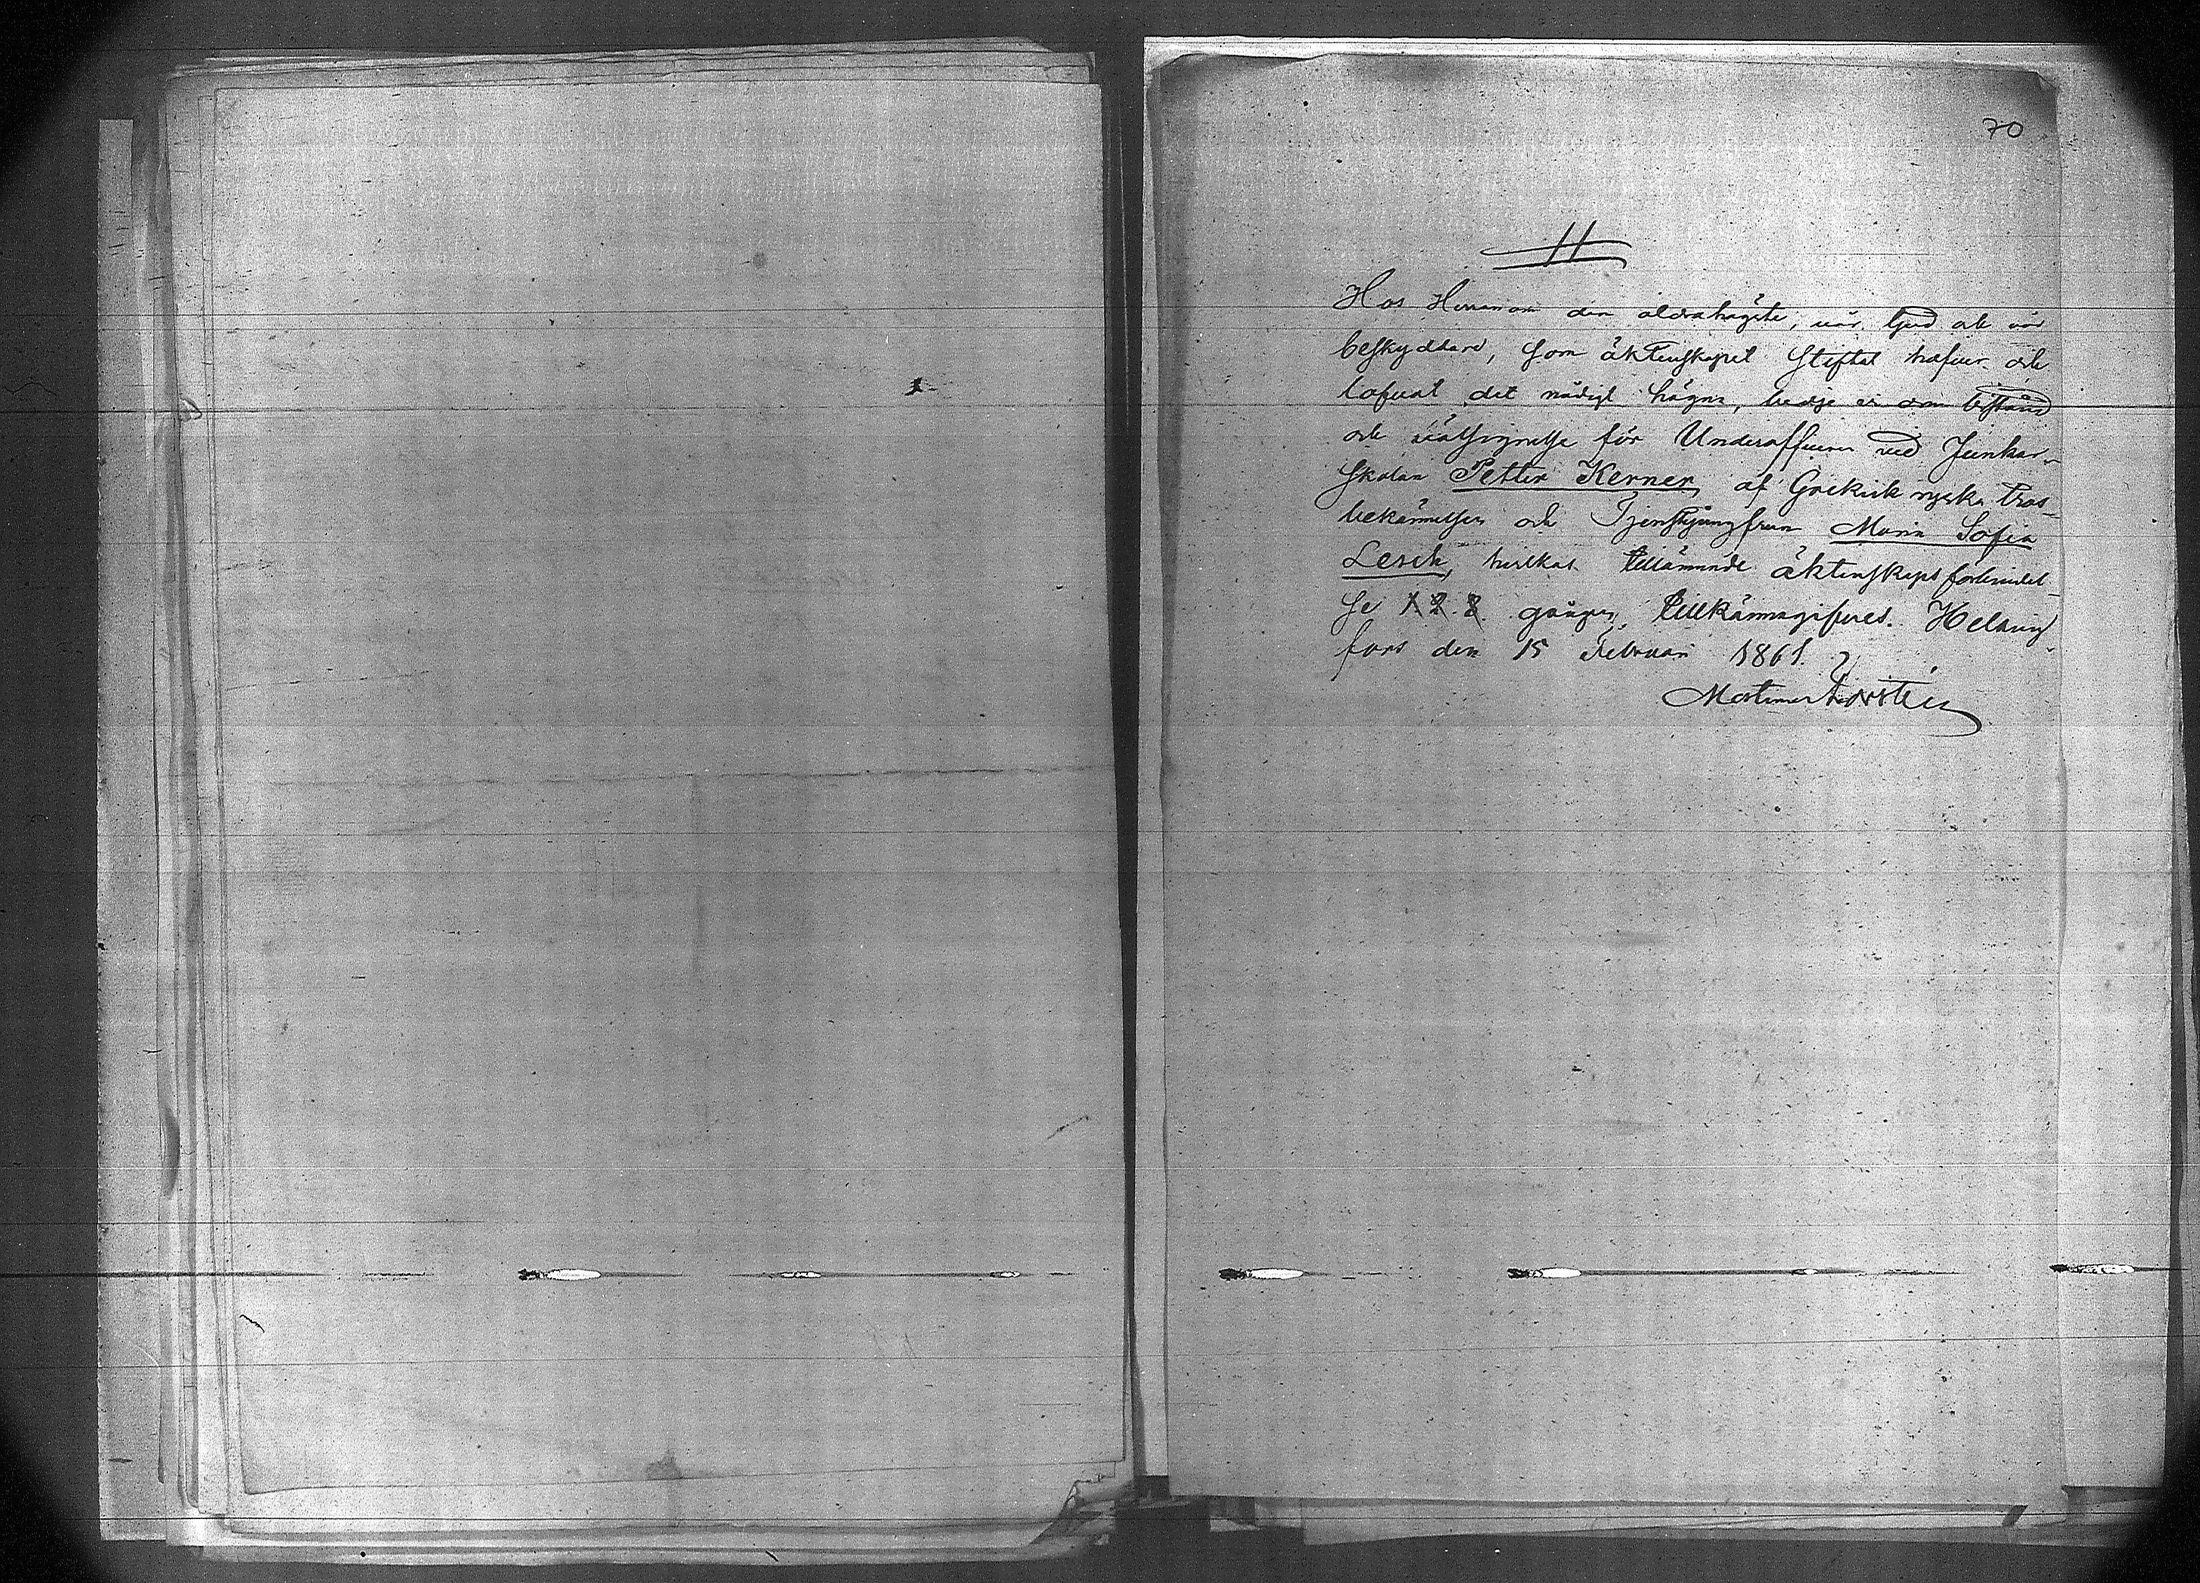 70
11
Hos Herranom den aldrahögste, vår Gud och vår
beskyddare, som äktenskapet stiftat hafver och
lofvat det nådigt hägna, bedje vi om bistånd
och välsignelse för Underofficeren vid Junkar-
skolan Petter Kerner, af Grekisk ryska tros-
bekännelsen och Tjenstejungfrun Maria Sofia
Lesch, hvilkas tillämnade äktenskapsförbindel-
se 1 2 3 gången tillkännagifves. Helsing-
fors den 15 Februari 1861.